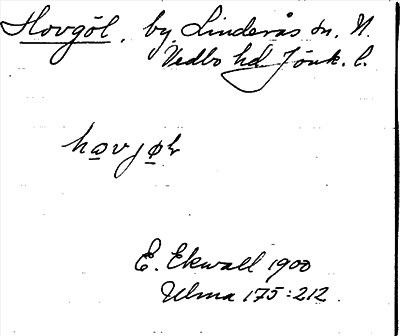 Hovgöl, by, Linderås sn. N.
Vedbo hd Jönk. l.
E. Ekwall 1900
Ulma 175:212.